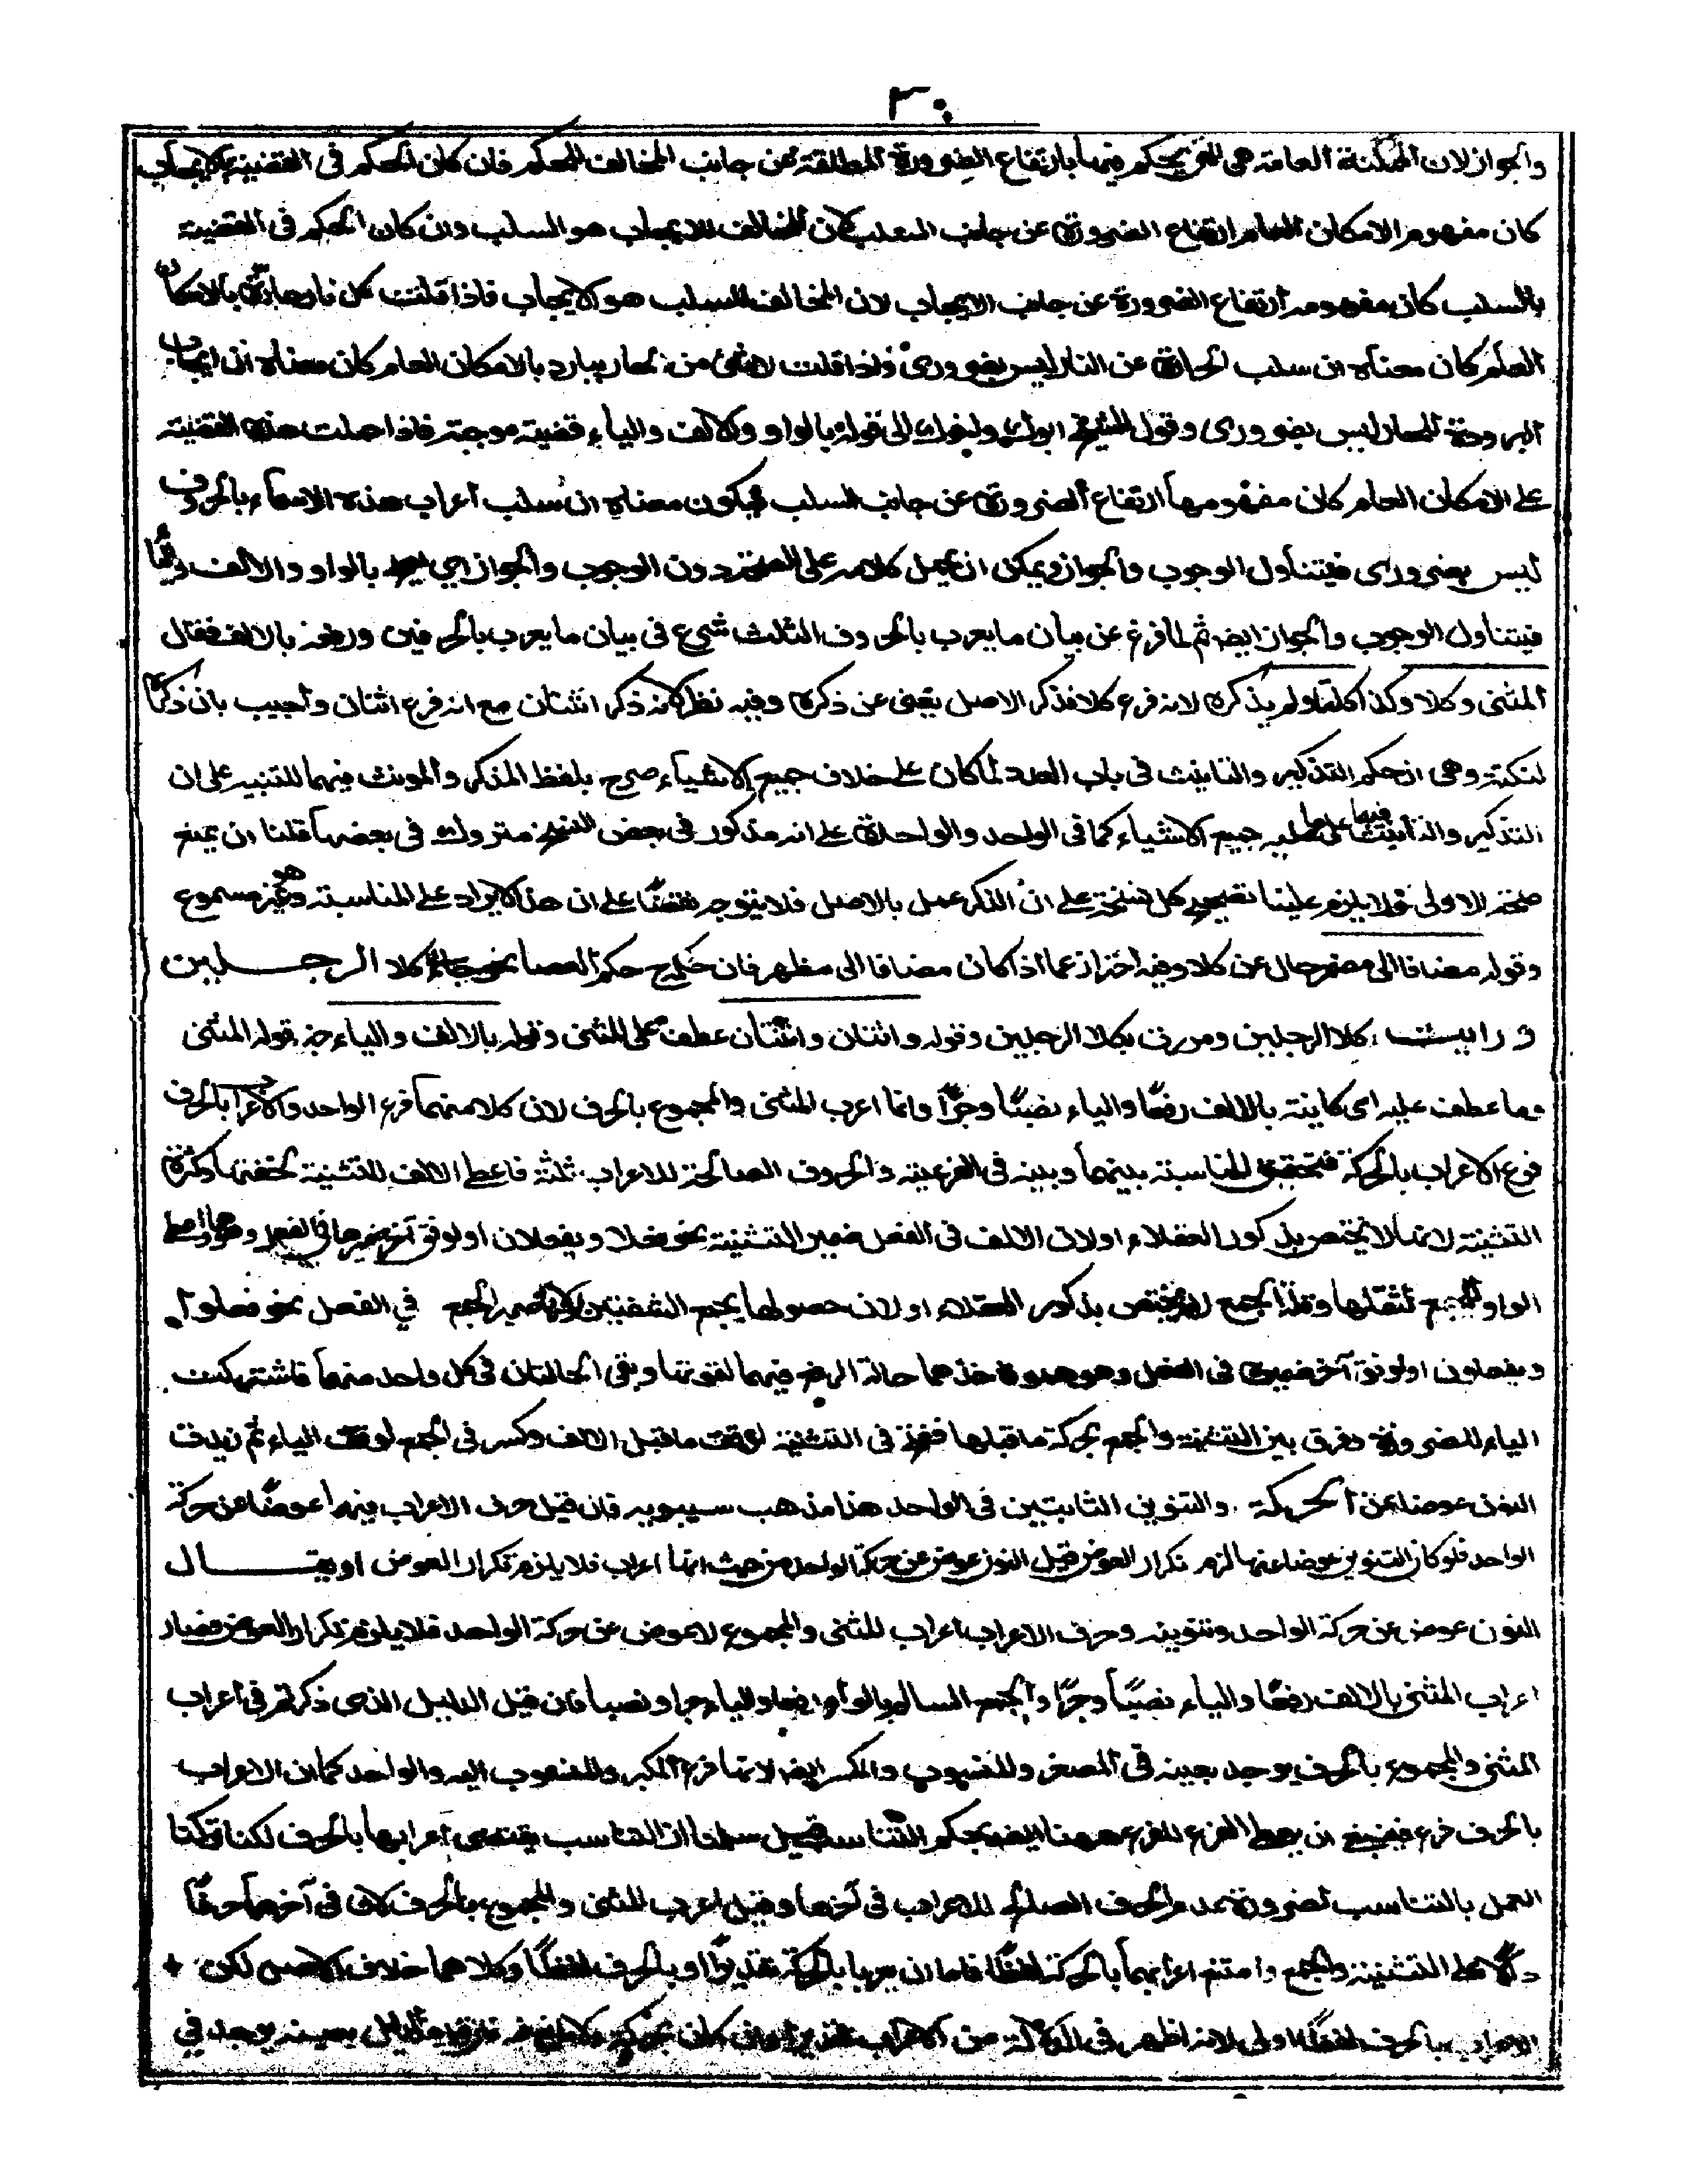 ٣٠
والجواز لان الممكنة العامة هى التى يحكم فيها بارتفاع الضرورة المطلقة عن جانب المخالف للحكم فان كان الحكم فى القضية بالايجاب
كان مفهوم الامكان العام ارتفاع الضرورة عن جانب السلب لان المخالف للايجاب هو السلب وان كان الحكم فى القضية
بالسلب كان مفهومه ارتفاع الضرورة عن جانب الايجاب لان المخالف للسلب هو الايجاب فاذا قلت كل نار حارة بالامكان
العام كان معناه ان سلب الحرارة عن النار ليس بضرورى واذا قلت لا شئ من الحار ببارد بالامكان العام كان معناه ان ايجاب
البرودة للحار ليس بضرورى وقول الشيخ ابوك واخوك الى قوله بالواو والالف والياء قضية موجبة فاذا حملت هذه القضية
على الامكان العام كان مفهومها ارتفاع الضرورة عن جانب السلب فيكون معناه ان سلب اعراب هذه الاسماء بالحروف
ليس بضرورى فيتناول الوجوب والجواز ويمكن ان يحمل كلامه على دون الوجوب والجواز اى بالواو والالف
فيتناول الوجوب والجواز ايضا ثم لما فرغ عن بيان ما يعرب بالحروف الثلث شرع فى بيان ما يعرب بالحرفين ورفعه بالالف فقال
المثنى وكلا وكذا كلتا ولم يذكره لانه فرع كلا فذكر الاصل يغنى عن ذكره وفيه نظر لانه ذكر اثنتان مع انه فرع اثنان واجيب بان ذكرها
لنكتة وهى ان حكم التذكير والتانيث فى باب العدد لما كان على خلاف جميع الاشياء صرح بلفظ المذكر والمونث فيهما للتنبيه على ان
التذكير والتانيث فيهما على ما عليه جميع الاشياء كما فى الواحد والواحدة على انه مذكور فى بعض النسخ متروك فى بعضها قلنا ان يمنع
صحة الاولى ولا يلزم علينا تصحيح كل نسخة على ان الذكر عمل بالاصل فلا يتوجه نقضا على ان هذا الايراد على المناسبة وهو غير مسموع
وقوله مضافا الى مضمر حال عن كلا وفيه احتراز عما اذا كان مضافا الى مظهر فان حكمه حكم العصا نحو جاء كلا الرجلين
و رايت كلا الرجلين ومررت بكلا الرجلين وقوله واثنان واثنتان عطف على المثنى وقوله بالالف والياء خبر قوله المثنى
وما عطف عليه اى كاينة بالالف رفعا والياء نصبا وجرا وانما اعرب المثنى والمجموع بالحرف لان كلا منهما فرع الواحد والاعراب بالحرف
فرع الاعراب بالحركة فتحقق المناسبة بينهما وبينه فى الفرعية والحروف الصالحة للاعراب ثلثة فاعطى الالف للتثنية لخفتها وكثرة
التثنية لانها لا يختص بذكور العقلاء او لان الالف فى الفعل ضمير التثنية نحو فعلا ويفعلان او لوفق آخر ضميرها فى الفعل وهو هما واعطى
الواو للجمع لثقلها وقلة الجمع لانه يختص بذكور العقلاء او لان حصولها بجمع الشفتين او لانها ضمير الجمع فى الفعل نحو فعلوا
ويفعلون او لوفق آخر ضميره فى الفعل وهو همو حالة الرفع فيهما لقوتها وبقى الحالتان فى كل واحد منهما فاشتركت
الياء للضرورة وفرق بين التثنية والجمع بحركة ما قبلها ففتح فى التثنية لوفق ما قبل الالف وكسر فى الجمع لوفق الياء ثم زيدت
النون عوضا عن الحركة والتنوين الثابتين فى الواحد هذا مذهب سيبويه فان قيل حرف الاعراب فيهما عوضا عن حركة
الواحد فلو كان التنوين عوضا عنها لزم تكرار العوض قيل النون عوض عن حركة الواحد من حيث انها اعراب فلا يلزم تكرار العوض او يقال
النون عوض عن حركة الواحد وتنوينه وحرف الاعراب اعراب للمثنى والمجموع لا عوض عن حركة الواحد فلا يلزم تكرار العوض فصار
اعراب المثنى بالالف رفعا والياء نصبا وجرا والجمع السالم بالواو رفعا والياء جرا ونصبا فان قيل الدليل الذى ذكرتم فى اعراب
المثنى والمجموع بالحرف يوجد بعينه فى المصغر والمنسوب والمكسر ايضا لانها فرع المكبر والمنسوب اليه والواحد كما ان الاعراب
بالحرف فرع فينبغى ان يعطى الفرع للفرع ههنا ايضا بحكم التناسب قيل سلمنا ان التناسب يقتضى اعرابها بالحرف لكنا تركنا
العمل بالتناسب لضرورة عدم الحرف الصالح للاعراب فى آخرها وقيل اعرب المثنى والمجموع بالحرف لان فى آخرهما حرفا
دالا على التثنية والجمع وامتنع اعرابهما بالحركة لفظا فاما ان يعربا بالحركة تقديرا او بالحرف لفظا وكلاهما خلاف الاصل لكن
الاعراب بالحرف لفظا اولى لانه اظهر فى الدلالة من الاعراب تقديرا وان كان بعينه يوجد فى